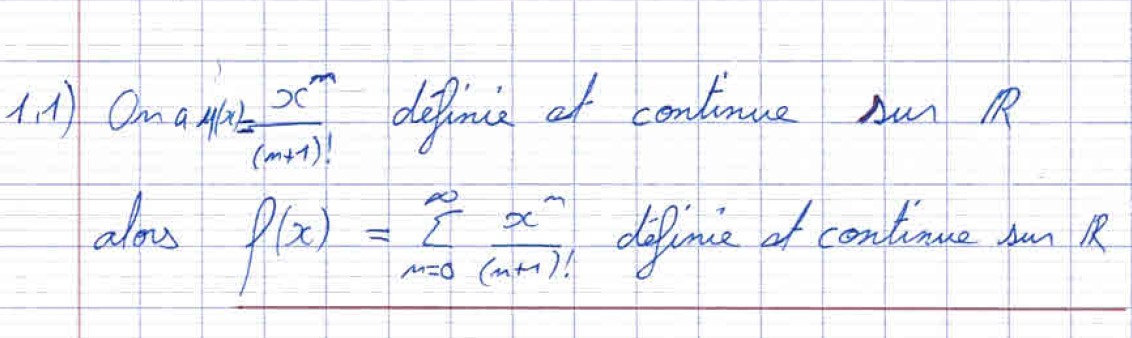 1.1) On a u(x)= x^n/(n+1)! définie et continue sur ℝ
alors f(x) = ∑_{n=0}^{∞} x^n/(n+1)! définie et continue sur ℝ